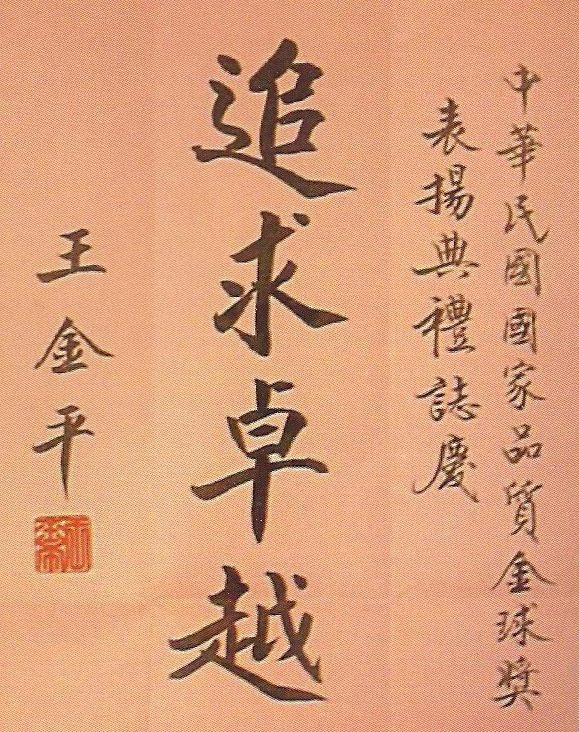 中華民國國家品質金球獎
表揚典禮誌慶
追求卓越
王金平